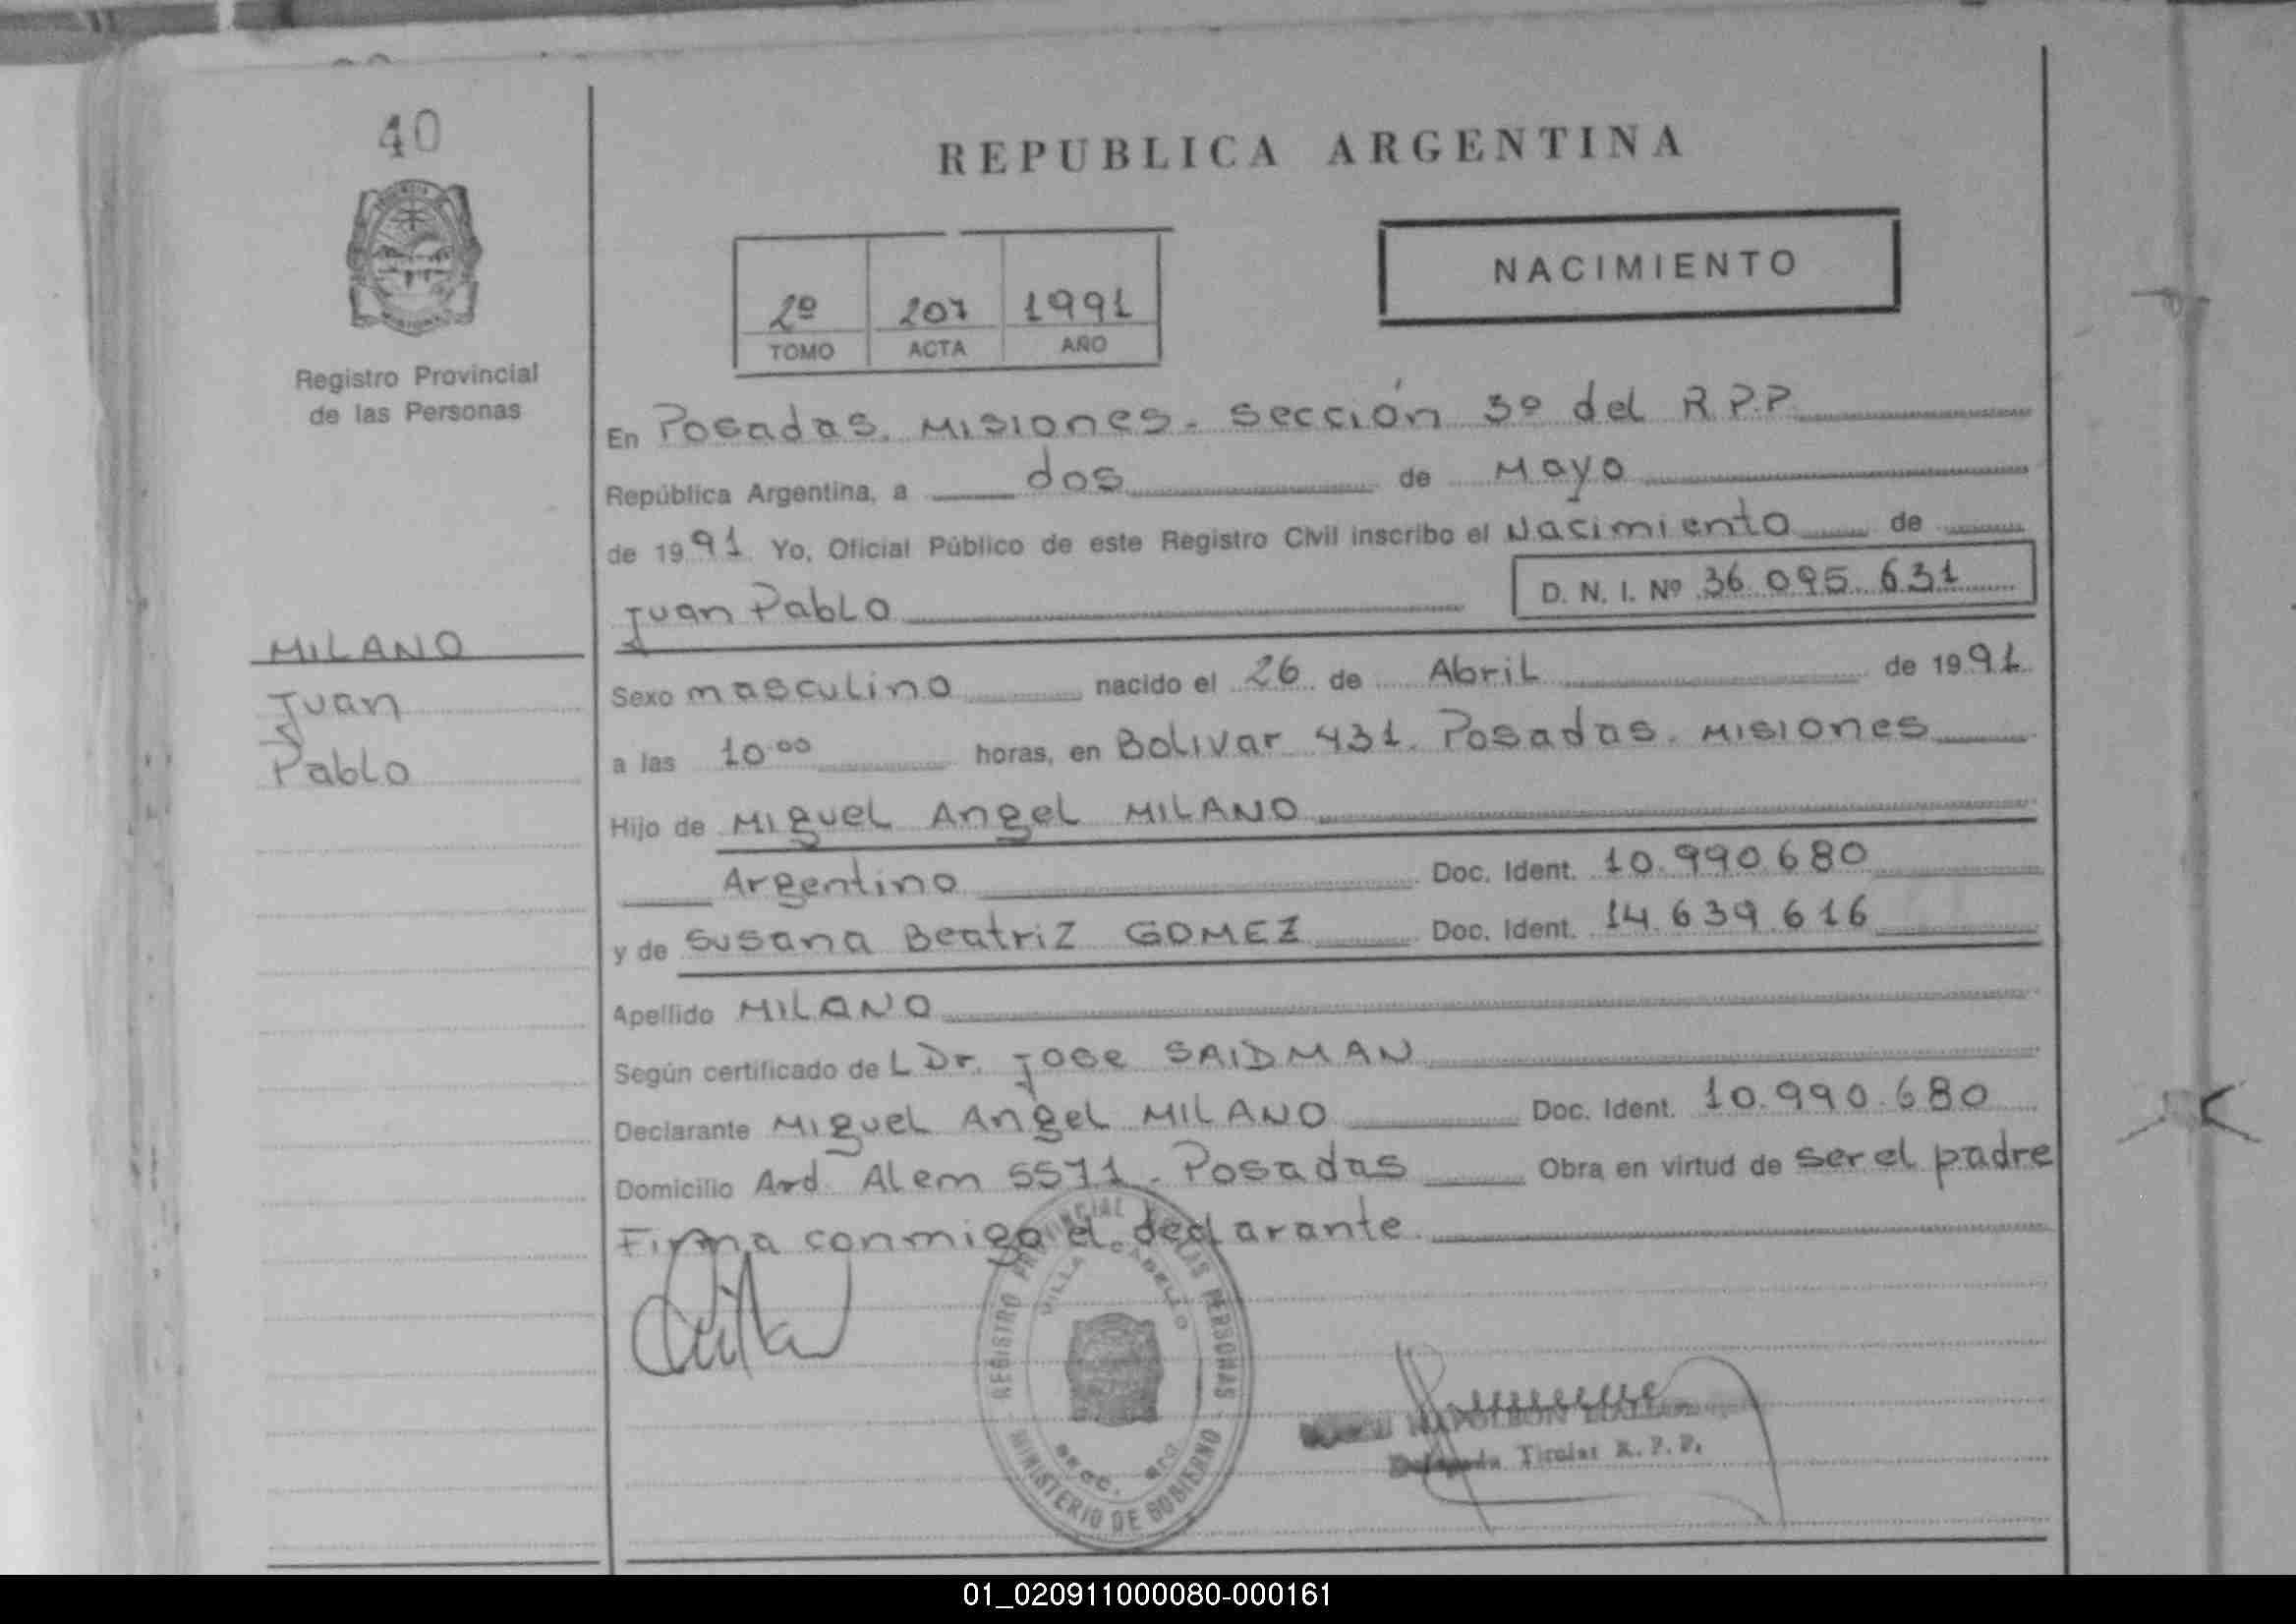 40
Registro Provincial
de las Personas
MILANO
Juan
Pablo
REPUBLICA ARGENTINA
NACIMIENTO
2º 207 1991
TOMO ACTA AÑO
En Posadas. Misiones. Sección 3º del R.P.P.
República Argentina, a dos de Mayo
de 1991 Yo, Oficial Público de este Registro Civil inscribo el Nacimiento de
Juan Pablo D. N. I. Nº 36.095.631
Sexo masculino nacido el 26 de Abril de 1991
a las 10.00 horas, en Bolivar 431. Posadas. Misiones
Hijo de Miguel Angel MILANO
Argentino Doc. Ident. 10.990.680
y de Susana Beatriz GOMEZ Doc. Ident. 14.639.616
Apellido MILANO
Según certificado del Dr. Jose SAIDMAN
Declarante Miguel Angel MILANO Doc. Ident. 10.990.680
Domicilio Avd. Alem 5571. Posadas Obra en virtud de ser el padre
Firma conmigo el declarante.
REGISTRO PROVINCIAL PERSONAS
VILLA CABELLO
MINISTERIO DE GOBIERNO
NAPOLEON
Titular R. P. P.
01_020911000080-000161